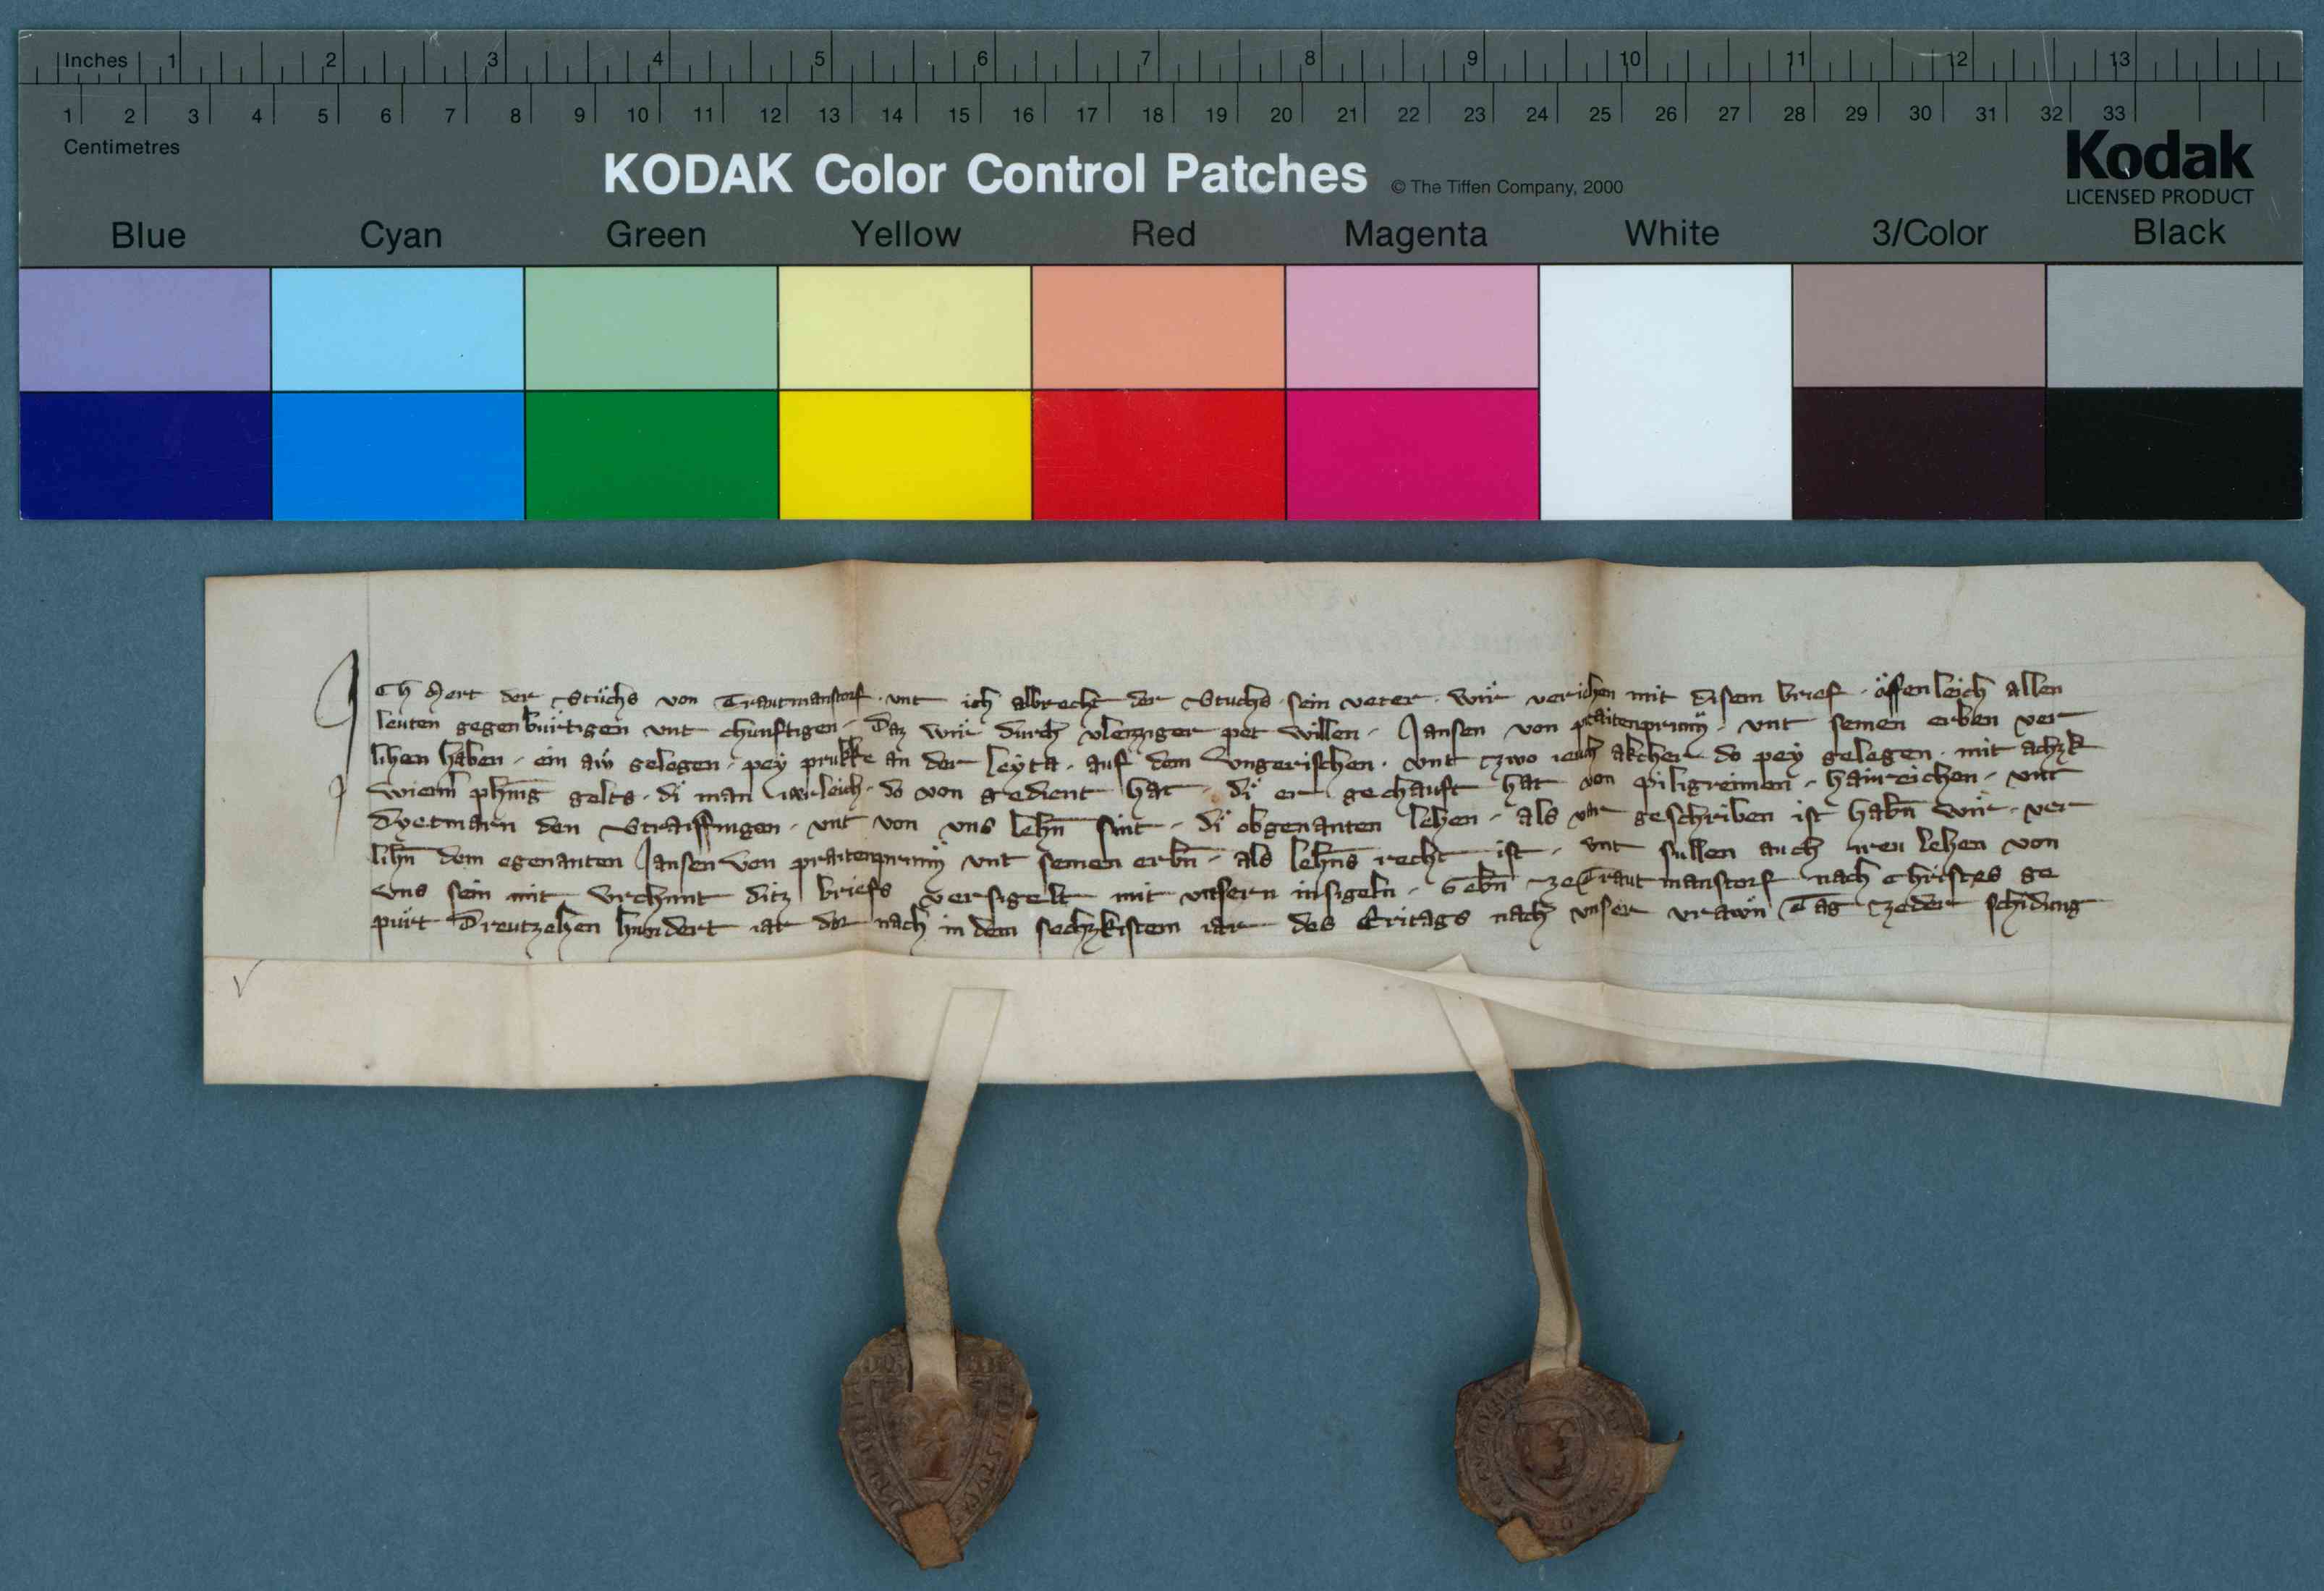 Inches 1 2 3 4 5 6 7 8 9 10 11 12 13
1 2 3 4 5 6 7 8 9 10 11 12 13 14 15 16 17 18 19 20 21 22 23 24 25 26 27 28 29 30 31 32 33
Centimetres
KODAK Color Control Patches © The Tiffen Company, 2000
Kodak
LICENSED PRODUCT
Blue Cyan Green Yellow Red Magenta White 3/Color Black
Ich der Stuchs von Trautmanstorf · vnt ich albrecht der Stuchs · sein veter · wir veriehen mit disem brief · offenleich allen
leuten gegenburtigen vnt chunftigen · Daz wir durch vleizziger pet willen · Jansen von praitenprunn · vnt seinen erben ver
lihen haben · ein aw gelegen · pey prukke an der leyta · auf dem Vngerischen · vnt zwo ieuch akcher do pey gelegen · mit achzk
wienn̄ phēnig gelts · di man iærleich · do von gedient hat · di er gechauft hat von Piligreimen · hainreichen · vnt
Dyetmarn den Straiffingen · vnt von vns lehn̄ sint · di obgenanten lehen · als vor geschriben ist habn̄ wir · ver
lihn̄ dem egenanten Jansen von praitenprunn vnt seinen erbn̄ · als lehn̄s recht ist · vnt sullen auch ireu lehen von
vns sein mit vrchunt ditz briefs versigelt mit vnsern insigeln · Gebn̄ ze Trautmanstorf nach Christes ge
purt Dreutzehen hundert iar dar nach in dem sechzkistem iar des Eritags nach vnser vrawn Tag ze der schidung